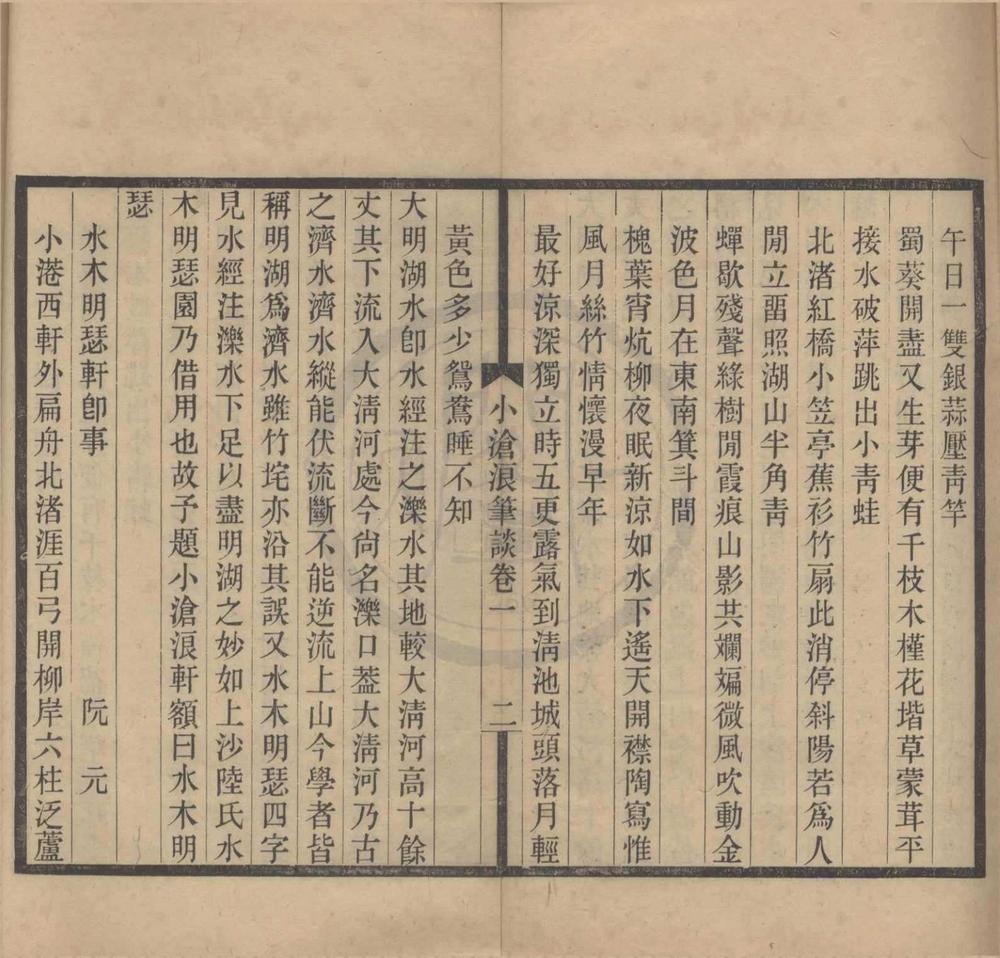 午日一雙銀蒜壓靑竿
蜀葵開盡又生芽便有千枝木槿花堦草蒙茸平
接水破萍跳出小靑蛙
北渚紅橋小笠亭蕉衫竹扇此消停斜陽若爲人
閒立畱照湖山半角靑
蟬歇殘聲綠樹閒霞痕山影共斕斒微風吹動金
波色月在東南箕斗間
槐葉宵炕柳夜眠新涼如水下遙天開襟陶寫惟
風月絲竹情懷漫早年
最好涼深獨立時五更露氣到淸池城頭落月輕
小滄浪筆談卷一
二
黃色多少鴛鴦睡不知
大明湖水卽水經注之濼水其地較大淸河高十餘
丈其下流入大淸河處今尙名濼口葢大淸河乃古
之濟水濟水縱能伏流斷不能逆流上山今學者皆
稱明湖爲濟水雖竹垞亦沿其誤又水木明瑟四字
見水經注濼水下足以盡明湖之妙如上沙陸氏水
木明瑟園乃借用也故予題小滄浪軒額曰水木明
瑟
水木明瑟軒卽事　阮元
小港西軒外扁舟北渚涯百弓開柳岸六柱泛蘆